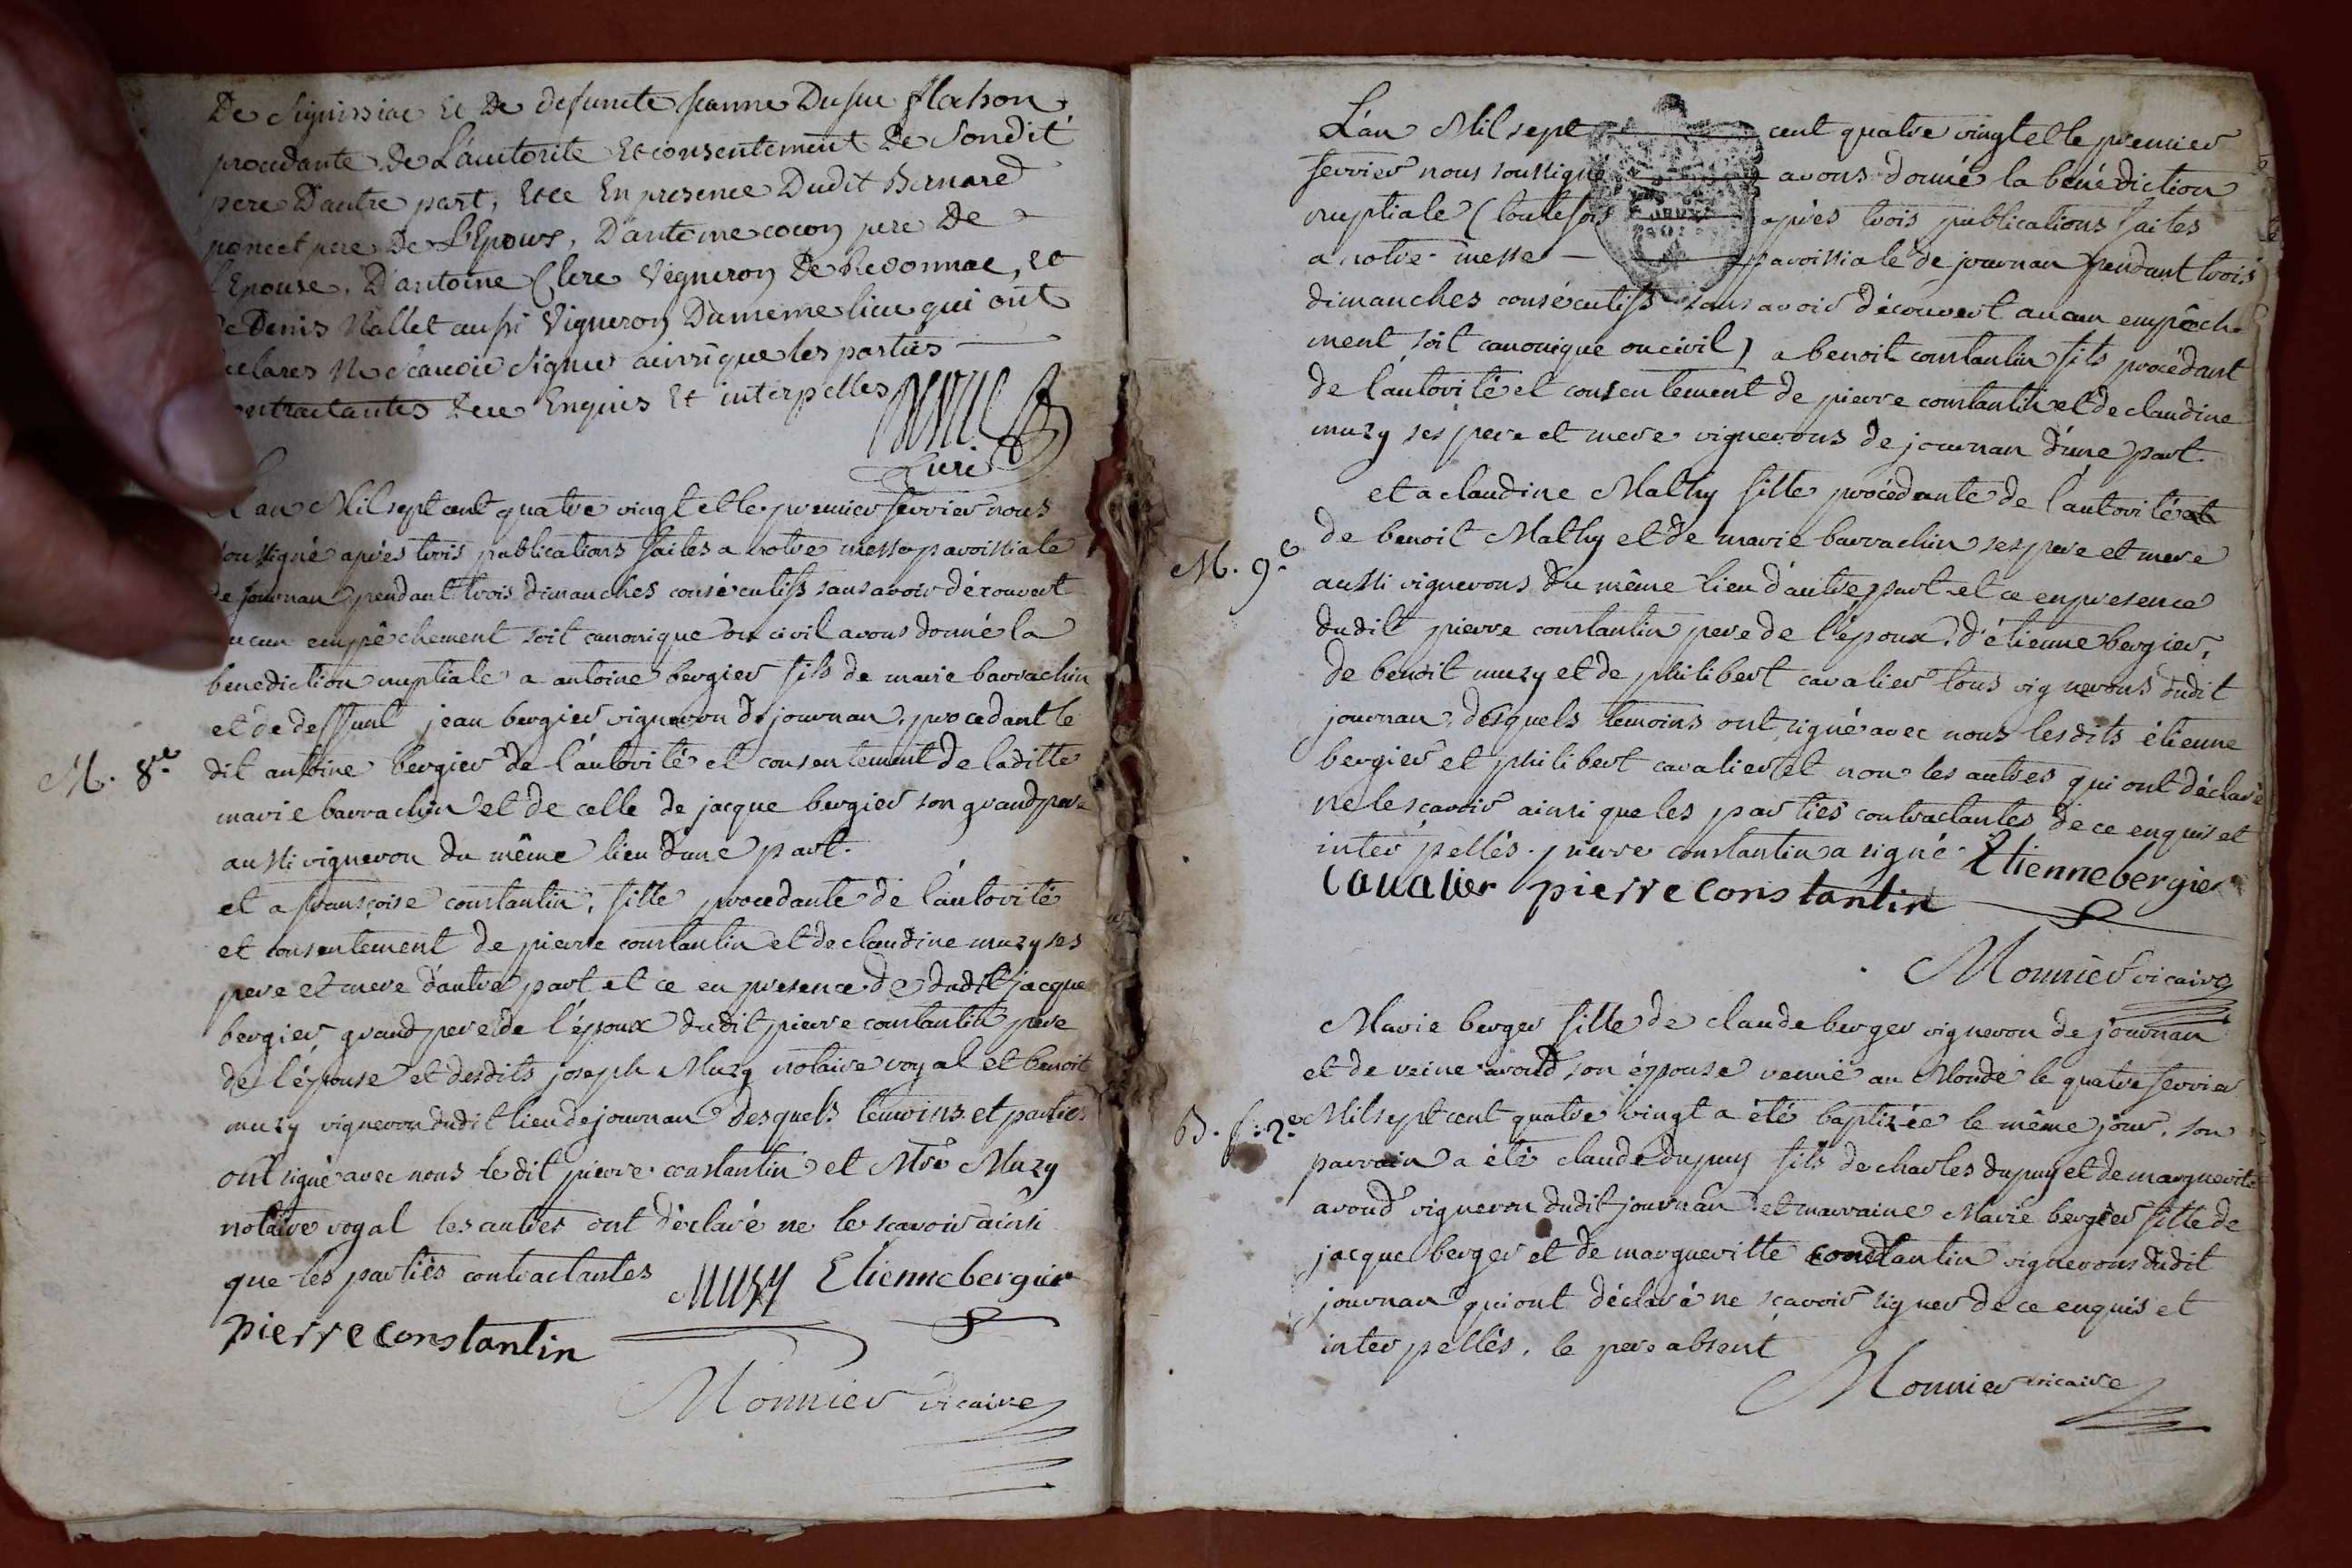 De Signissiac Et De defuncte Jeanne Dusuc flachon
procedante De L'autorite Et consentement De Sondit
pere D'autre part, Et ce En presence Dudit Bernard
poncet pere De L'Epoux, D'antoine cocon pere De
l'Epouse, D'antoine Clere Vigneron De Revonnac, et
De Denis Vallet aussi Vigneron Du meme lieu qui ont
declares Ne Scavoir Signer ainsi que les parties
contractantes De ce Enquis Et interpelles
Curé
L'an Mil sept cent quatre vingt et le premier fevrier nous
soussigné après trois publications faites a notre messe paroissiale
de journan pendant trois dimanches consécutifs sans avoir décrouvert
aucun empêchement soit canonique ou civil avons donné la
benediction nuptiale a antoine bergier fils de marie barrachin
et de deffunt jean bergier vigneron de journan, procedant le
M. 8.e dit antoine bergier de l'autorité et consentement de laditte
marie barrachin et de celle de jacque bergier son grand pere
aussi vigneron du même lieu d'une part.
et a françoise constantin, fille procedante de l'autorité
et consentement de pierre constantin et de claudine muzy ses
pere et mere d'autre part et ce en presence de dudit jacque
bergier grand pere de l'époux dudit pierre constantin pere
de l'épouse et desdits joseph Muzy notaire royal et benoit
muzy vigneron dudit lieu de journan desquels témoins et parties
ont signé avec nous le dit pierre constantin et Mtre Muzy
notaire royal les autres ont déclaré ne le scavoir ainsi
que les partiés contractantes muzy Etienne bergier
pierre constantin
Monnier vicaire
L'an Mil sept cent quatre vingt et le premier
fevrier nous soussigné avons donné la bénédiction
nuptiale (toutefois après trois publications faites
a notre messe paroissiale de journan pendant trois
dimanches consécutifs sans avoir découvert aucun empêche
ment soit canonique ou civil) a benoit constantin fils procédant
de l'autorité et consentement de pierre constantin et de claudine
muzy ses pere et mere vignerons de journan d'une part.
et a claudine Mathy fille procédante de l'autorité et
de benoit Mathy et de marie barrachin ses pere et mere
M. 9.e aussi vignerons du même lieu d'autre part et ce en presence
dudit pierre constantin pere de l'époux, d'étienne bergier,
de benoit muzy et de philibert cavalier tous vignerons dudit
journan, desquels temoins ont signé avec nous lesdits étienne
bergier et philibert cavalier et non les autres qui ont déclaré
ne le scavoir ainsi que les parties contractantes de ce enquis et
interpellés. pierre constantin a signé. Etienne bergier
Cavalier pierre constantin
Monnier vicaire
Marie berger fille de claude berger vigneron de journan
et de reine avoud son épouse venuë au Monde le quatre fevrier
B. f. 2.e Mil sept cent quatre vingt a été baptizée le même jour. son
parrain a été claude dupuy fils de charles dupuy et de marguerite
avoud vigneron dudit journan et marraine Marie bergier fille de
jacque berger et de margueritte constantin vignerons dudit
journan qui ont déclaré ne scavoir signer de ce enquis et
interpellés. le pere absent
Monnier vicaire